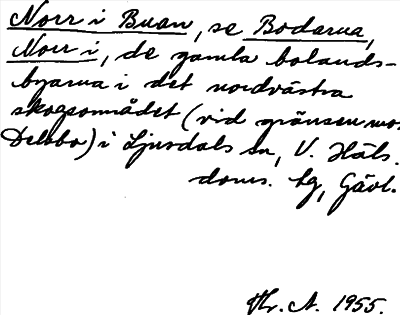 Norr i Buan, se Bodarna,
Norr i, de gamla bolands-
byarna i det nordvästra
skogsområdet (vid gränsen mot
Delsbo) i Ljusdals sn, V. Häls.
doms. tg, Gävl.
A. 1955.